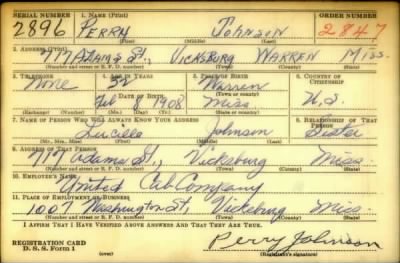 SERIAL NUMBER 1. NAME (Print) ORDER NUMBER
2896 PERRY JOHNSON 2847
(First) (Middle) (Last)
2. ADDRESS (Print)
717 ADAMS St., VICKSBURG WARREN MISS.
(Number and street or R. F. D. number) (Town) (County) (State)
3. TELEPHONE 4. AGE IN YEARS 5. PLACE OF BIRTH 6. COUNTRY OF CITIZENSHIP
None 32 Warren
(Town or county)
DATE OF BIRTH
Feb 8 1908 Miss. U.S.
(Exchange) (Number) (Mo.) (Day) (Yr.) (State or country)
7. NAME OF PERSON WHO WILL ALWAYS KNOW YOUR ADDRESS 8. RELATIONSHIP OF THAT PERSON
Lucille Johnson Sister
(Mr., Mrs., Miss) (First) (Middle) (Last)
9. ADDRESS OF THAT PERSON
717 Adams St., Vicksburg Miss.
(Number and street or R. F. D. number) (Town) (County) (State)
10. EMPLOYER'S NAME
United Cab Company
11. PLACE OF EMPLOYMENT OR BUSINESS
1007 Washington St, Vicksburg Miss.
(Number and street or R. F. D. number) (Town) (County) (State)
I AFFIRM THAT I HAVE VERIFIED ABOVE ANSWERS AND THAT THEY ARE TRUE.
REGISTRATION CARD Perry Johnson
D. S. S. Form 1 (over) (Registrant's signature)